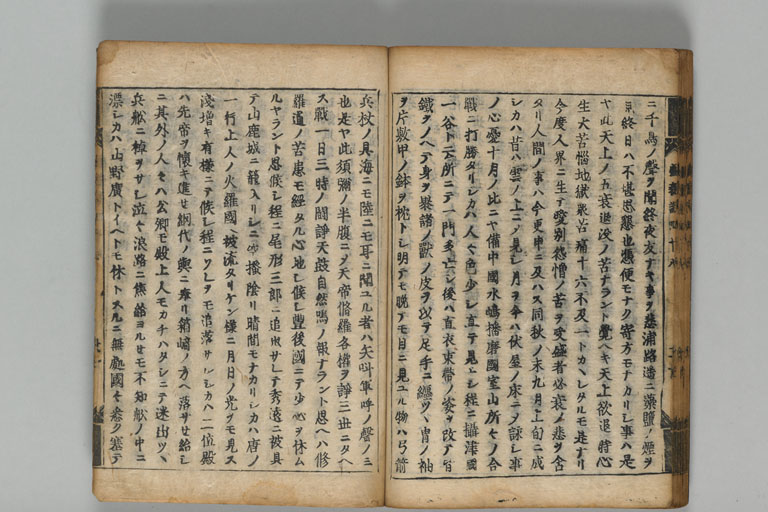 ニ千鳥ノ聲ヲ聞終夜友ナキ事ヲ悲浦路遙ニ藻鹽ノ煙ヲ
終日ハ不堪思懸也憑便モナク寄方モナカリシ事ハ是
ヤ此天上ノ五衰退没ノ苦ナラント覺ヘキ天上欲退時心
生大苦惱地獄衆苦痛十六不及一トカヘレタルモ是ナリ
今度人界ニ生テ愛別怨憎ノ苦ヲ受盛者必衰ノ悲ヲ含
タリ人間ノ事ハ今更申ニ及ハス同秋ノ末九月上旬ニ成
シカハ昔ハ雲ノ上ニテ見シ月ヲ今ハ伏屋ノ床ニテ詠シ事
ノ心憂十月ノ比ニヤ備中國水嶋播磨國室山所々ノ合
戰ニ打勝タリシカハ人々色少シ直テ見ヘシ程ニ攝津國
一谷ト云所ニテ一門多亡シ後ハ直衣束帶ノ姿ヲ改テ皆
鐵クノヘテ身ヲ裹諸ノ獸ノ皮ヲ以テ足手ニ纏ツヽ冑ノ袖
ヲ片敷甲ノ鉢ヲ枕トシ明テモ晩テモ目ニ見ユル物ハ弓箭
兵杖ノ具海ニモ陸ニモ耳ニ聞ユル者ハ矢叫軍呼ノ聲ノミ
也是ヤ此須彌ノ半腹ニテ天帝脩羅各權ヲ諍三世ニタヘ
ス戰一日三時ノ鬪諍天鼓自然鳴ノ報ナラント思ヘハ修
羅道ノ苦患モ經タル心地シ候シ豐後國ニテ少心ヲ休ム
ルヤラント思候シ程ニ尾形三郎ニ追出サレテ秀遠ニ被具
テ山鹿城ニ籠入リシニ空掻陰リ暗闇モナカリシカハ唐ノ
一行上人ノ火羅國ヘ被流タリケン樣ニ月日ノ光ヲモ見ス
淺增キ有樣ニテ候シ程ニソレヲモ追落サレシカハ二位殿
ハ先帝ヲ懷キ進セ網代ノ輿ニ奉リ箱崎ノ方ヘ落サセ給シ
ニ其外ノ人々ハ公卿モ殿上人モカチハタシニテ迷出ツヽ
兵舩ニ棹ヲサシ泣々浪路ニ焦給ヨルセモ不知舩ノ中ニ
漂シカハ山野廣トイヘトモ休トスルニ無處國々悉ク塞テ